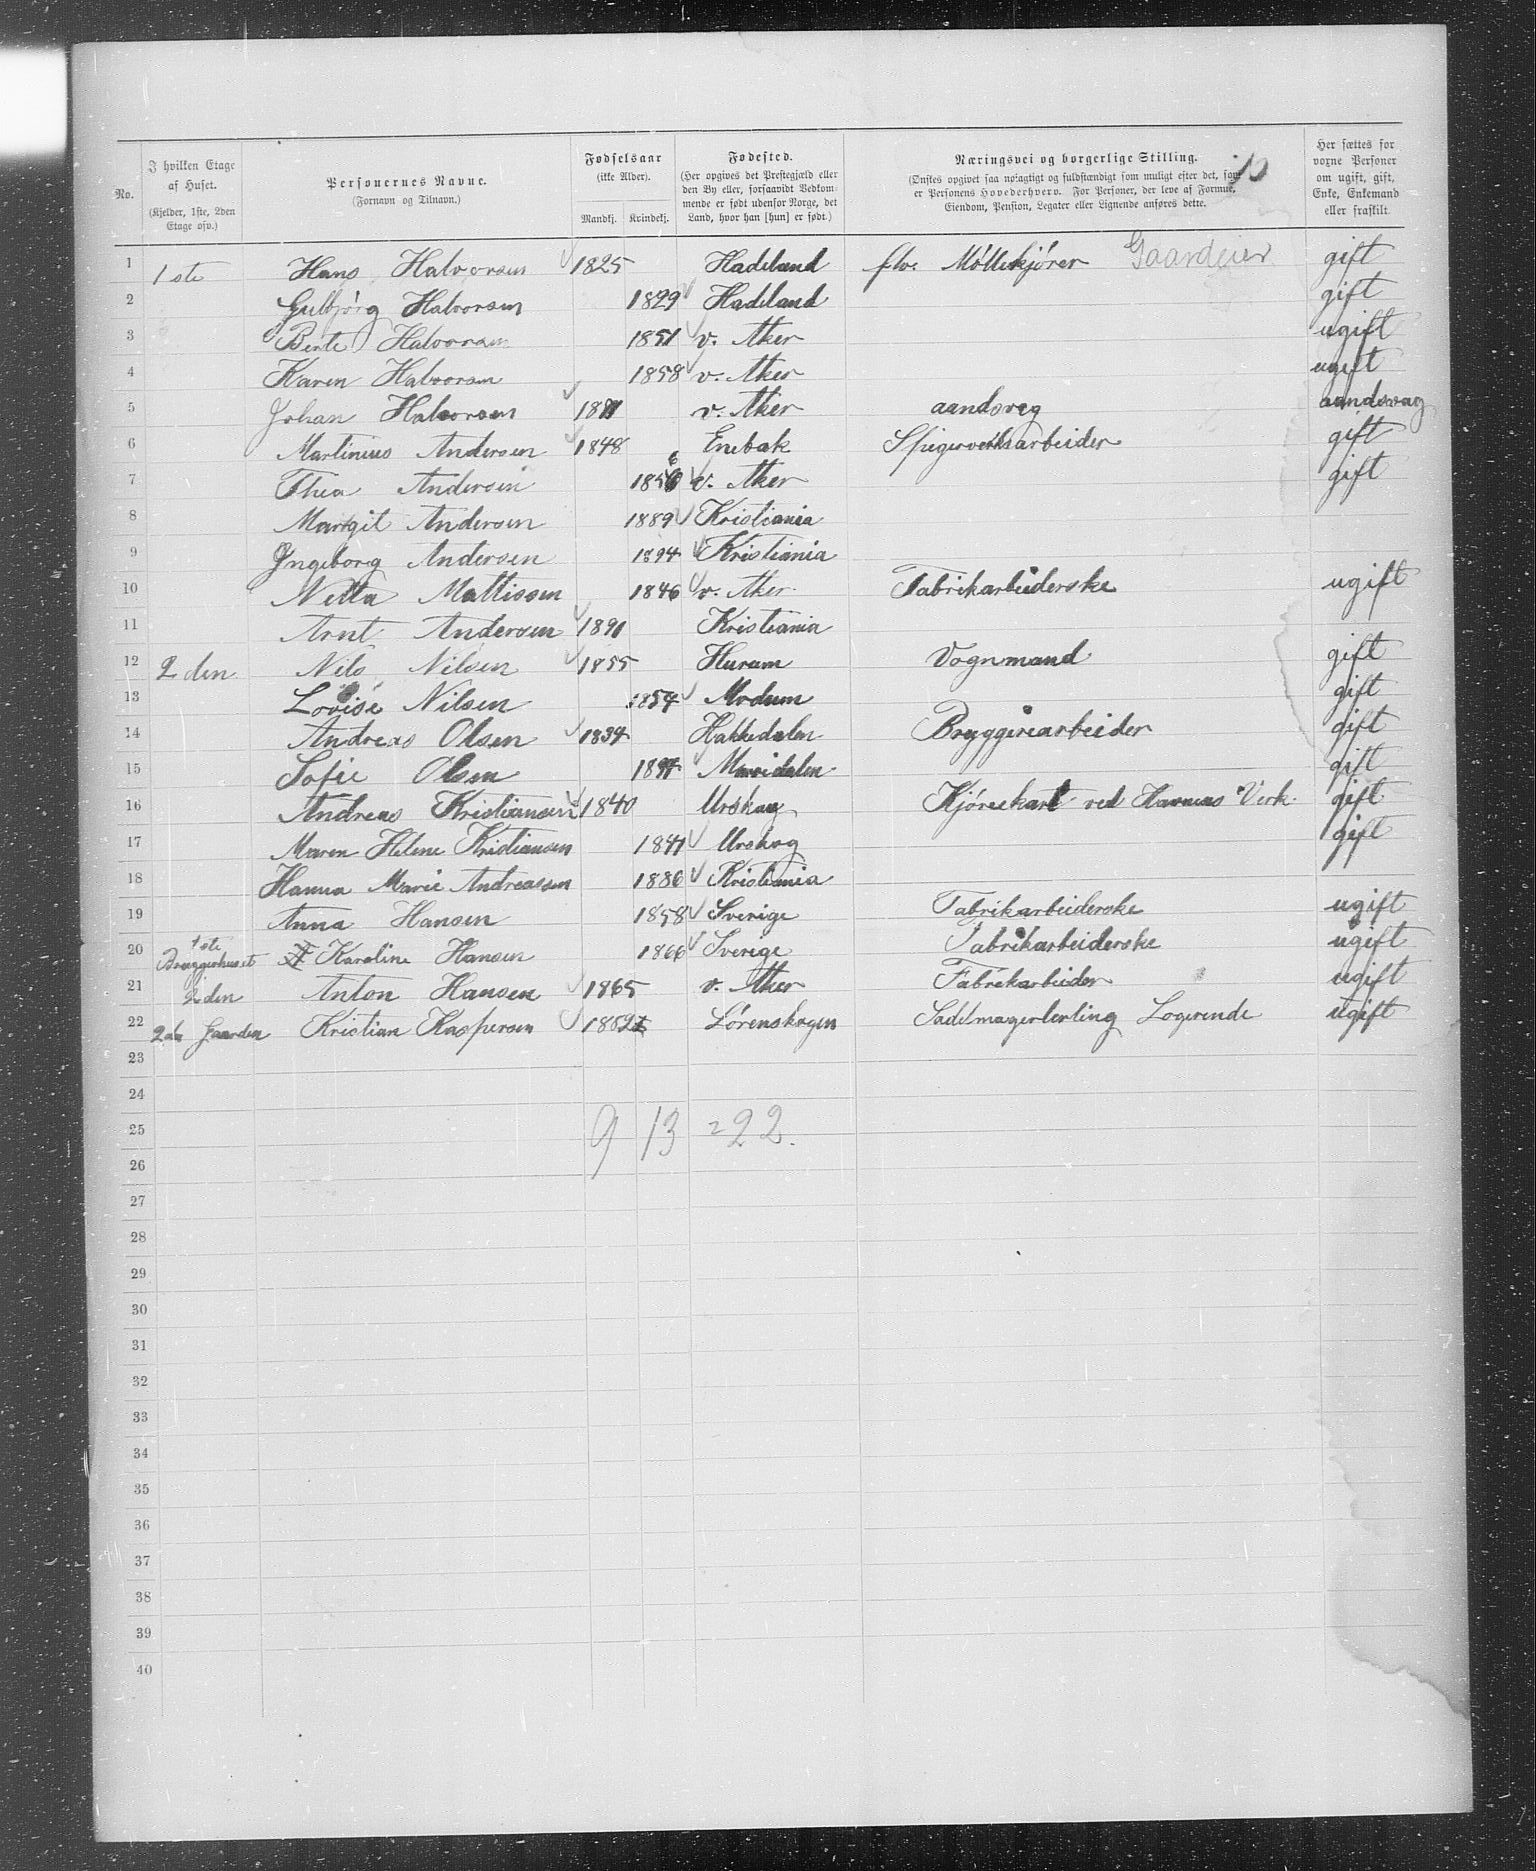 No.
I hvilken Etage af Huset.
(Kjelder, 1ste, 2den Etage osv.)
Personernes Navne.
(Fornavn og Tilnavn.)
Fødselsaar
(ikke Alder).
Mandkj. Kvindekj.
Fødested.
(Her opgives det Prestegjæld eller den By eller, forsaavidt Vedkommende er født udenfor Norge, det Land, hvor han [hun] er født.)
Næringsvei og borgerlige Stilling.
(Ønskes opgivet saa nøiagtigt og fuldstændigt som muligt efter det, som er Personens Hovederhverv. For Personer, der leve af Formue, Eiendom, Pension, Legater eller Lignende anføres dette.
Her sættes for voxne Personer om ugift, gift, Enke, Enkemand eller fraskilt.
1 1ste Hans Halvorsen 1825 Hadeland flv. Møllekjører Gaardeier gift
2 Gulbjørg Halvorsen 1829 Hadeland gift
3 Berte Halvorsen 1851 v. Aker ugift
4 Karen Halvorsen 1858 v. Aker ugift
5 Johan Halvorsen v. Aker aandsvag aandsvag
6 Martinius Andersen 1848 Enebak Spigerverksarbeider gift
7 Thea Andersen 1856 v. Aker gift
8 Margit Andersen 1889 Kristiania
9 Ingeborg Andersen 1894 Kristiania
10 Netta Mattissen 1846 v. Aker Fabrikarbeiderske ugift
11 Arnt Andersen 1891 Kristiania
12 2den Nils Nilsen 1855 Hurum Vognmand gift
13 Lovise Nilsen 1854 Modum gift
14 Andreas Olsen 1834 Hakkedalen Bryggeriarbeider gift
15 Sofie Olsen Maridalen gift
16 Andreas Kristiansen 1840 Urskog Kjørerkarl ved Havnas Verk. gift
17 Maren Helene Kristiansen 1841 Urskog gift
18 Hanna Marie Andreassen 1886 Kristiania
19 Anna Hansen 1858 Sverige Fabrikarbeiderske ugift
20 1ste Bryggerhuset Karoline Hansen 1866 Sverige Fabrikarbeiderske ugift
21 2den Anton Hansen 1865 v. Aker Fabrikarbeider ugift
22 Gaarden Kristian Kaspersen 1882 Lørenskogen Sadelmagerlerling Logerende ugift
23
24
25 9 13 = 22.
26
27
28
29
30
31
32
33
34
35
36
37
38
39
40